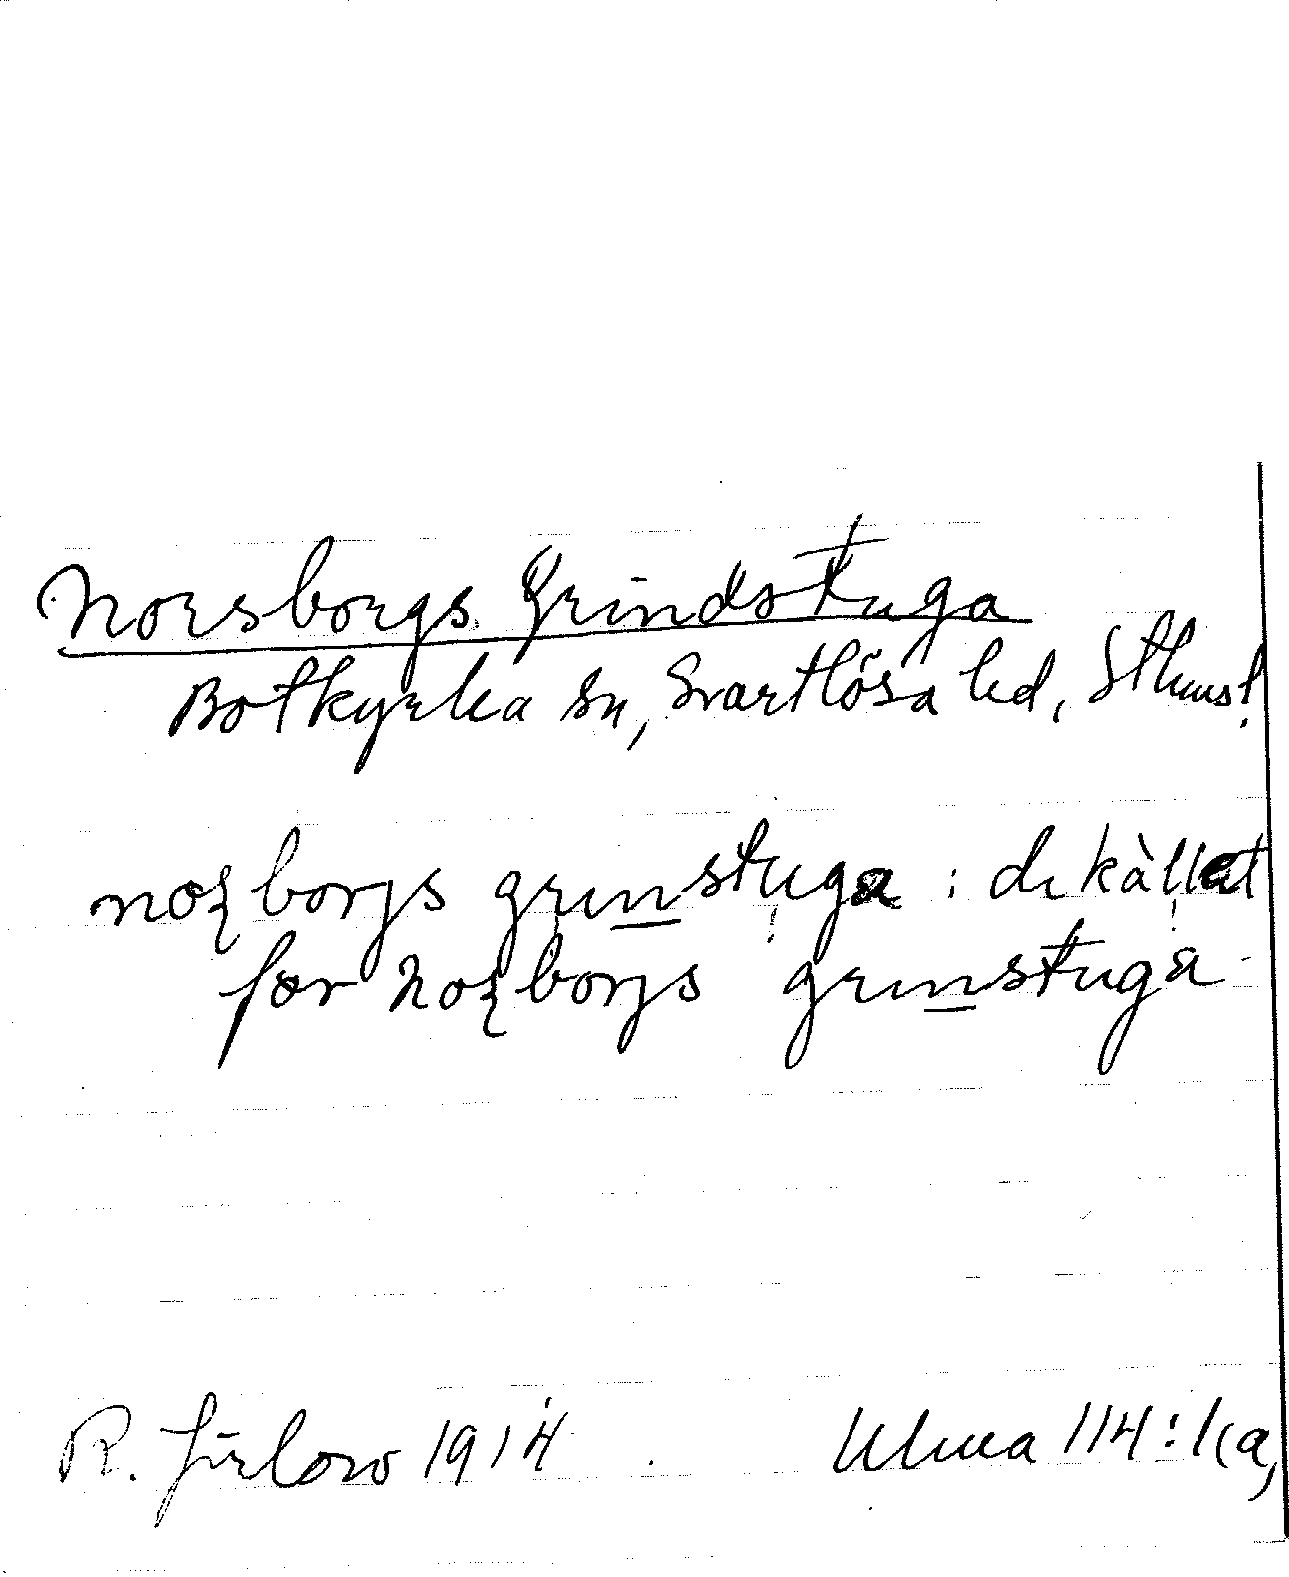 Norsborgs Grindstuga
Botkyrka sn, Svartlösa hd, Sthms l.
noʂborjs grɩnstuga : dɩ kàllat
før noʂborjs grɩnstuga
R. Fürlow 1914 Ulma 114:1(a)